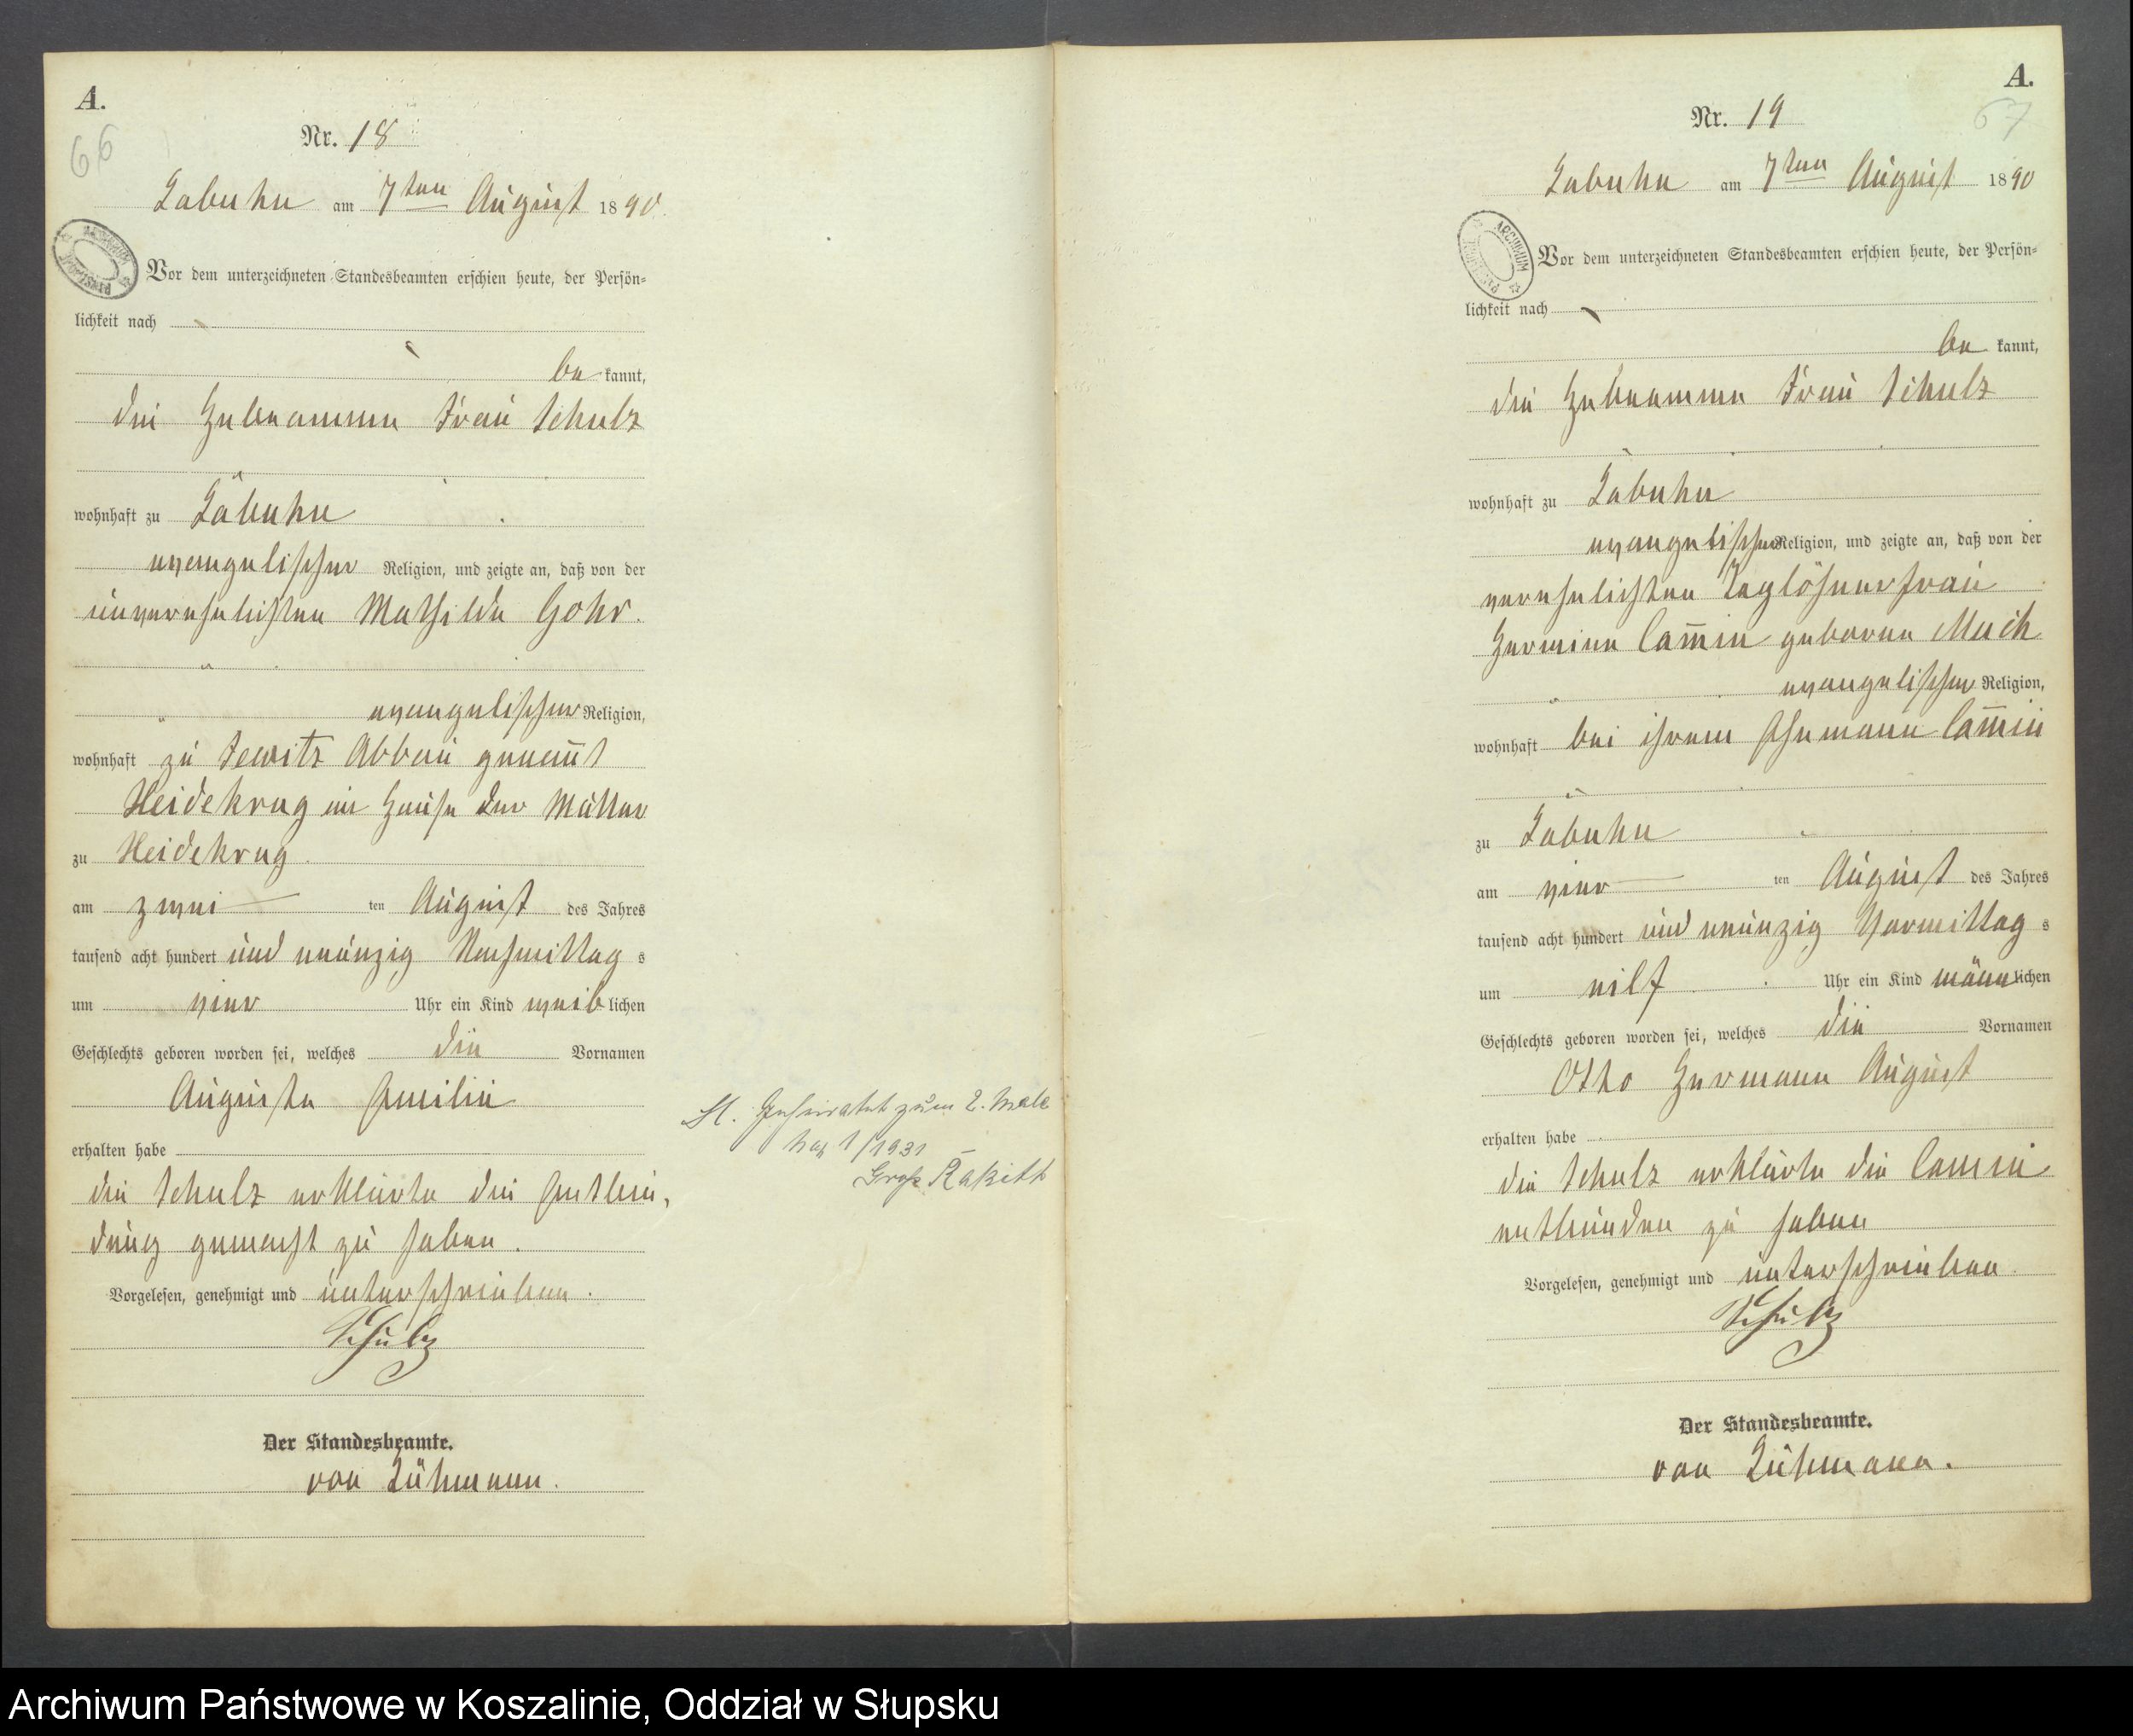 A.
66
Nr. 18
Labuhn am 7ten August 1890.
Vor dem unterzeichneten Standesbeamten erschien heute, der Persön=
lichkeit nach
be kannt,
die Hebeamme Frau Schulz
wohnhaft zu Labuhn
evangelischer Religion, und zeigte an, daß von der
unverehelichten Mathilde Gohr.
evangelischer Religion,
wohnhaft zu Tewitz Abbau genannt
Heidekrug im Hause der Mutter
zu Heidekrug.
am zwei ten August des Jahres
tausend acht hundert und neunzig Nachmittag s
um vier Uhr ein Kind weib lichen
Geschlechts geboren worden sei, welches die Vornamen
Auguste Emilie
erhalten habe
die Schulz erklärte die Entbin,
dung gemacht zu haben.
Vorgelesen, genehmigt und unterschrieben.
Schulz
Der Standesbeamte.
von Lühmann.
Geheiratet zum 2. Male
1/1931
Groß Rakitt
A.
67
Nr. 19
Labuhn am 7ten August 1890
Vor dem unterzeichneten Standesbeamten erschien heute, der Persön=
lichkeit nach
be kannt,
die Hebeamme Frau Schulz
wohnhaft zu Labuhn
evangelischer Religion, und zeigte an, daß von der
verehelichten Taglöhnerfrau
Hermine Cam̅in geborene Mach
evangelischer Religion,
wohnhaft bei ihrem Ehemann Cam̅in
zu Labuhn
am vier ten August des Jahres
tausend acht hundert und neunzig Vormittag s
um eilf Uhr ein Kind männ lichen
Geschlechts geboren worden sei, welches die Vornamen
Otto Hermann August
erhalten habe
die Schulz erklärte die Camin
entbunden zu haben
Vorgelesen, genehmigt und unterschrieben.
Schulz
Der Standesbeamte.
von Lühmann.
Archiwum Państwowe w Koszalinie, Oddział w Słupsku